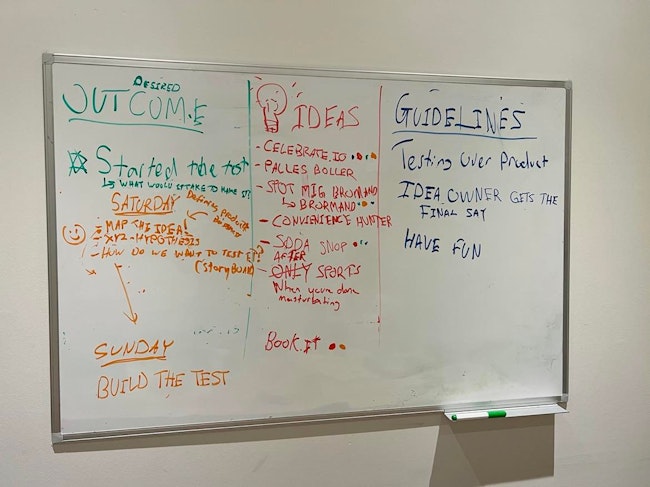 DESIRED
OUTCOME
Started the test
↳ WHAT WOULD IT TAKE TO MAKE IT?
SATURDAY
- MAP THE IDEA!
- XYZ-HYPOTHESIS
- HOW DO WE WANT TO TEST IT?
(STORYBOARD)
SUNDAY
BUILD THE TEST
IDEAS
- CELEBRATE.IO
- PALLES BOLLER
- SPOT MIG BRORMAND
↳ BRORMAND
- CONVENIENCE HUNTER
- SODA SHOP
AFTER
- ONLY SPORTS
When you're done
masturbating
BOOK.IT
GUIDELINES
Testing over Product
IDEA OWNER GETS THE
FINAL SAY
HAVE FUN